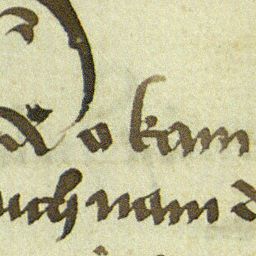 Do kam
uch nam d